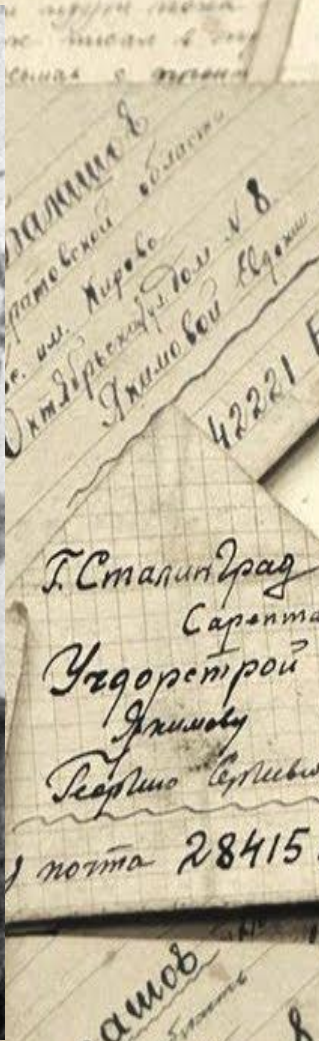 писал в
Балашов
ратовской области
ос. им. Кирова
Октябрьская ул. дом N 8
Якимовой Евдокии
42221
Г. Сталинград
Сарепта
Учдорстрой
Якимову
Георгию Сергееви
почта 28415
ашов
область
8